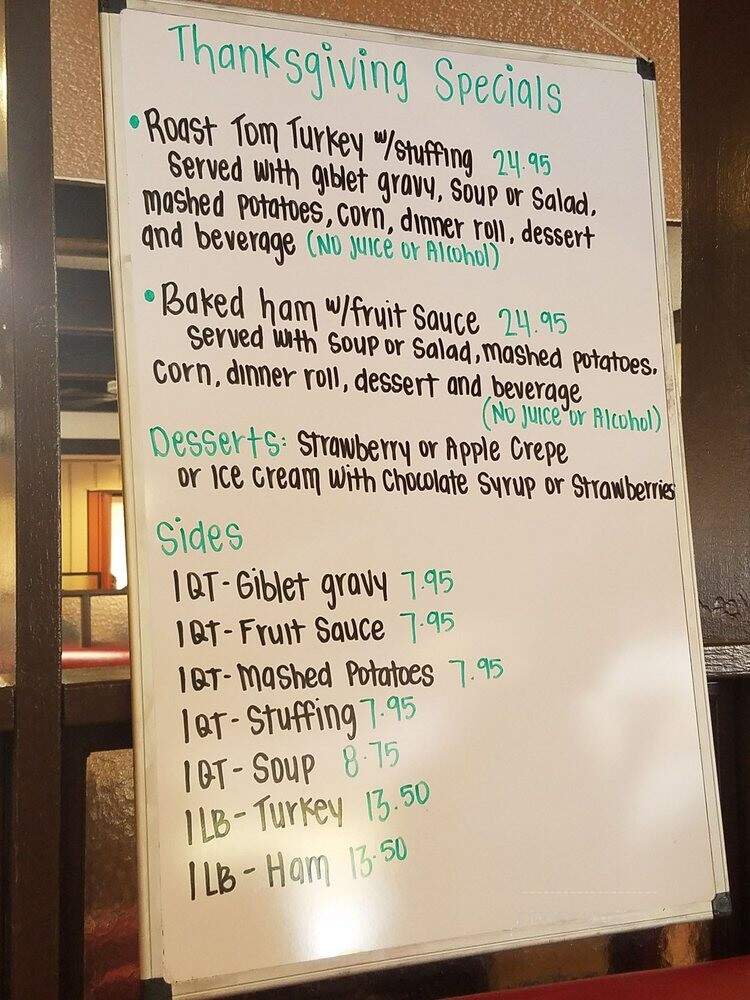 Thanksgiving Specials
• Roast Tom Turkey w/stuffing 24.95
Served with giblet gravy, soup or salad,
mashed potatoes, corn, dinner roll, dessert
and beverage (No juice or Alcohol)
• Baked ham w/fruit sauce 24.95
Served with soup or salad, mashed potatoes,
corn, dinner roll, dessert and beverage
(No juice or Alcohol)
Desserts: Strawberry or Apple Crepe
or Ice cream with Chocolate Syrup or Strawberries
Sides
1 QT - Giblet gravy 7.95
1 QT - Fruit Sauce 7.95
1 QT - Mashed Potatoes 7.95
1 QT - Stuffing 7.95
1 QT - Soup 8.75
1 LB - Turkey 13.50
1 LB - Ham 13.50